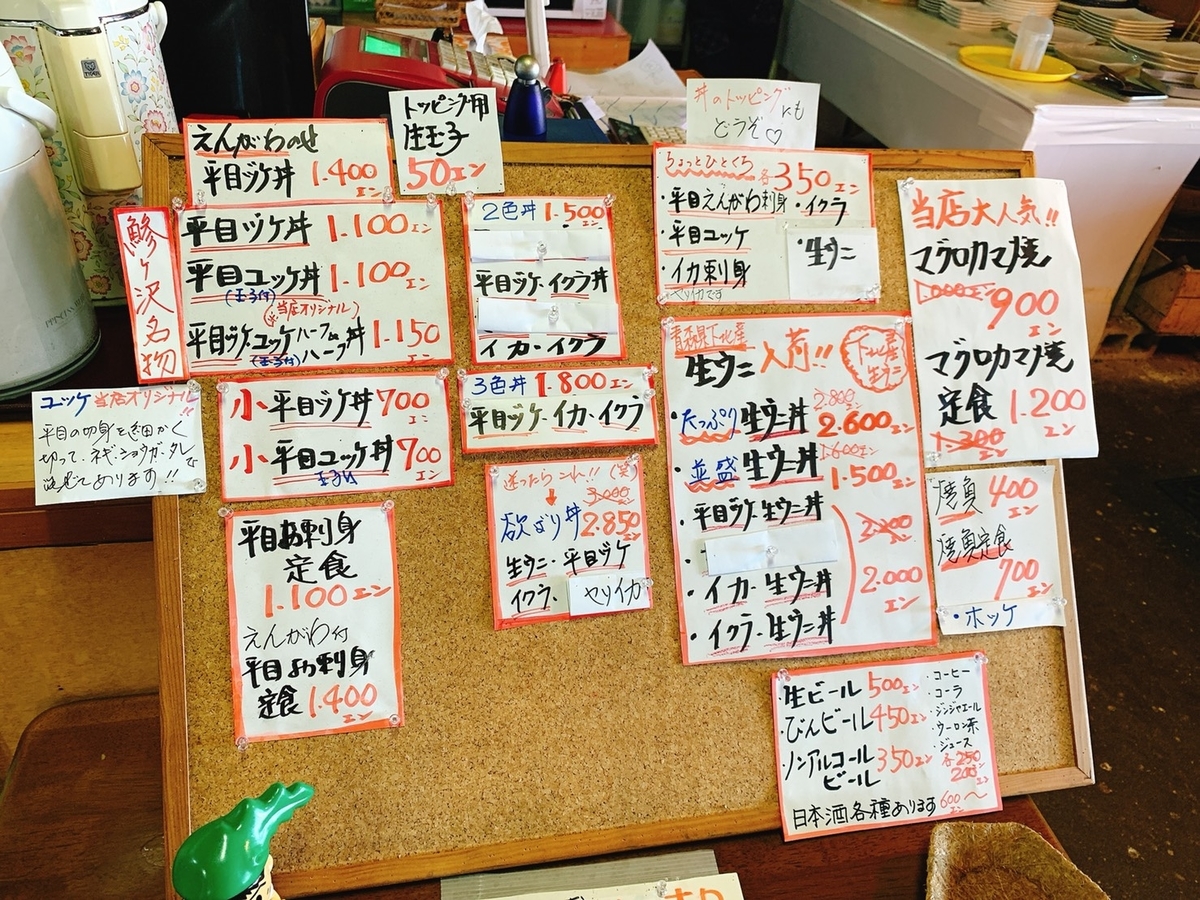 えんがわのせ
平目ヅケ丼 1.400エン
トッピング用
生玉子
50エン
鰺ヶ沢名物
平目ヅケ丼 1.100エン
平目ユッケ丼 1.100エン
(玉子付)
(※当店オリジナル)
平目ヅケ・ユッケ ハーフ&ハーフ丼 1.150エン
(玉子付)
ユッケ 当店オリジナル!!
平目の切身を細かく
切って、ネギ・ショウガ・タレで
混ぜてあります!!
小 平目ヅケ丼 700エン
小 平目ユッケ丼 700エン
玉子付
平目お刺身
定食
1.100エン
えんがわ付
平目お刺身
定食 1.400エン
2色丼 1.500エン
平目ヅケ・イクラ丼
イカ・イクラ
3色丼 1.800エン
平目ヅケ・イカ・イクラ
迷ったらこれ!! (笑)
3.000
欲ばり丼 2.850エン
生ウニ・平目ヅケ
イクラ、ヤリイカ
丼のトッピングにも
どうぞ♡
ちょっとひとくち 各350エン
・平目えんがわ刺身 ・イクラ
・平目ユッケ ・生ウニ
・イカ刺身
ヤリイカです
青森県下北産
生ウニ入荷!!
下北産
生ウニ
2.800
・たっぷり生ウニ丼 2.600エン
1.600エン
・並盛生ウニ丼 1.500エン
・平目ヅケ・生ウニ丼
・イカ・生ウニ丼 2.000エン
・イクラ・生ウニ丼
当店大人気!!
マグロカマ焼
1.000エン
900エン
マグロカマ焼
定食 1.200エン
1.300エン
焼魚 400エン
焼魚定食
700エン
・ホッケ
・生ビール 500エン
・びんビール 450エン
・ノンアルコールビール 350エン
・コーヒー
・コーラ
・ジンジャエール
・ウーロン茶
・ジュース
各250
200エン
日本酒各種あります 600エン〜